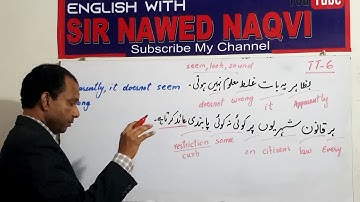 YouTube
ENGLISH WITH
SIR NAWED NAQVI
Subscribe My Channel
TT-6
seem, look, sound
بظاہر یہ بات غلط معلوم نہیں ہوتی۔
it doesnot seem
doesnot wrong it Apparently
ہر قانون شہریوں پر کوئی نہ کوئی پابندی عائد کرتا ہے۔
restriction some on citizens law Every
curb